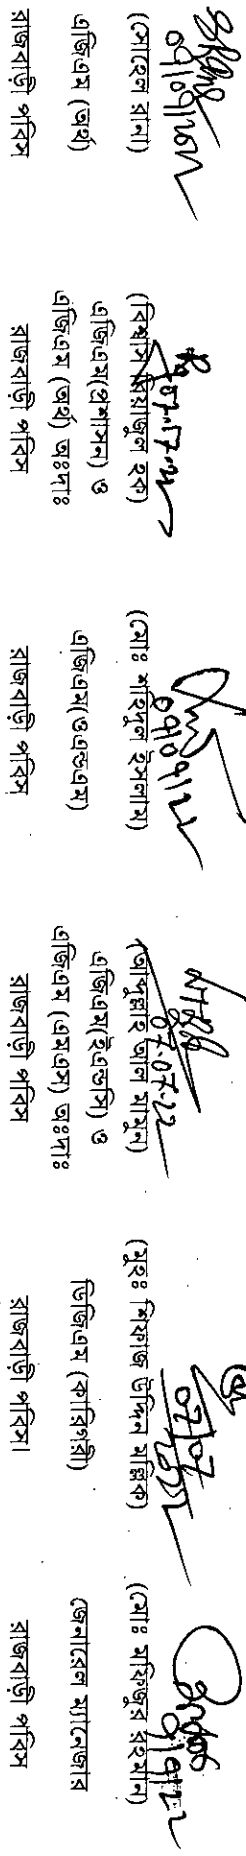 ০৭/০৭/২০২২
(সোহেল রানা)
এজিএম (অর্থ)
রাজবাড়ী পবিস
০৭.০৭.২২
(বিশ্বাস রিয়াজুল হক)
এজিএম(প্রশাসন) ও
এজিএম (অর্থ) অঃদাঃ
রাজবাড়ী পবিস
০৭/০৭/২২
(মোঃ শহিদুল ইসলাম)
এজিএম(ওএন্ডএম)
রাজবাড়ী পবিস
07.07.22
(আব্দুল্লাহ আল মামুন)
এজিএম(ইএন্ডসি) ও
এজিএম (এমএস) অঃদাঃ
রাজবাড়ী পবিস
07/07
2022
(মুহঃ শিফাজ উদ্দিন মল্লিক)
ডিজিএম (কারিগরী)
রাজবাড়ী পবিস।
(মোঃ মফিজুর রহমান)
জেনারেল ম্যানেজার
রাজবাড়ী পবিস